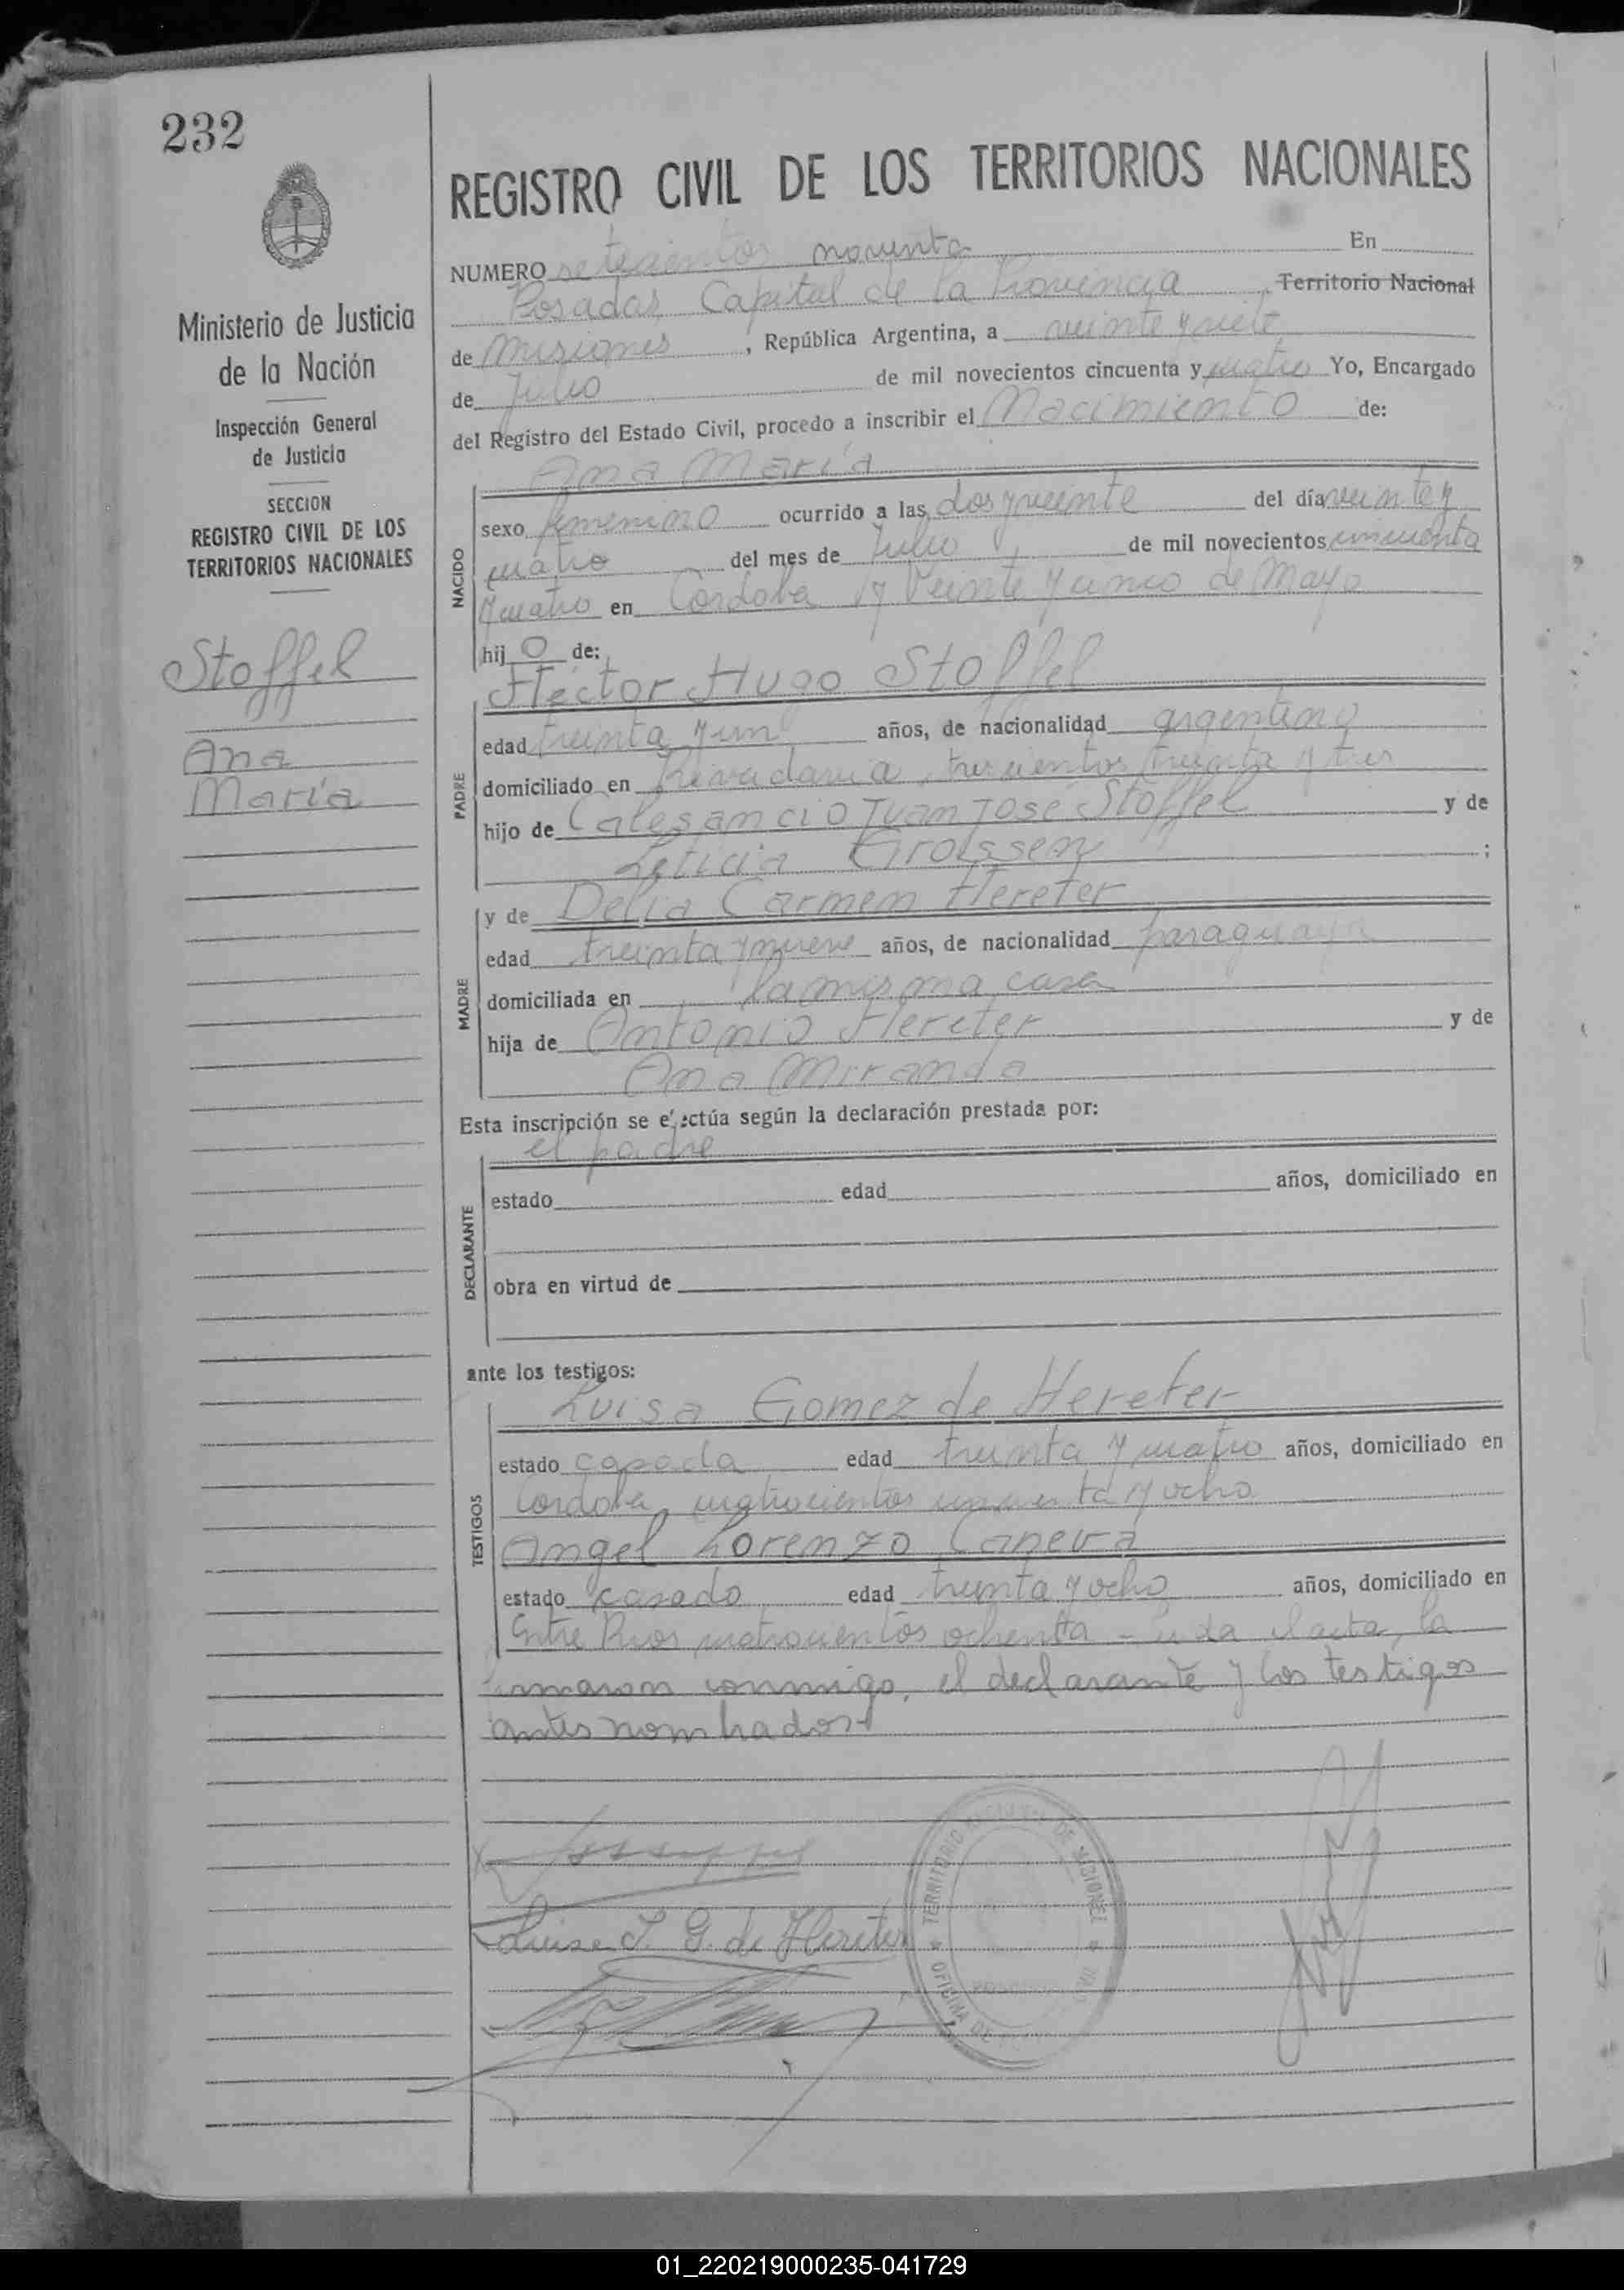 232
REGISTRO CIVIL DE LOS TERRITORIOS NACIONALES
Ministerio de Justicia
de la Nación
Inspección General
de Justicia
SECCION
REGISTRO CIVIL DE LOS
TERRITORIOS NACIONALES
Stoffel
Ana
María
NUMERO setecientos noventa En
Posadas, Capital de la Provincia, Territorio Nacional
de Misiones, República Argentina, a veinte y siete
de Julio de mil novecientos cincuenta y cuatro Yo, Encargado
del Registro del Estado Civil, procedo a inscribir el Nacimiento de:
Ana María
NACIDO
sexo femenino ocurrido a las dos y veinte del día veinte y
cuatro del mes de Julio de mil novecientos cincuenta
y cuatro en Córdoba y Veinte y cinco de Mayo
hij o de:
Héctor Hugo Stoffel
PADRE
edad treinta y un años, de nacionalidad argentino
domiciliado en Rivadavia, trescientos treinta y tres
hijo de Calesancio Juan José Stoffel y de
Leticia Groissen;
y de Delia Carmen Hereter
MADRE
edad treinta y nueve años, de nacionalidad paraguaya
domiciliada en la misma casa
hija de Antonio Hereter y de
Ana Miranda
Esta inscripción se efectúa según la declaración prestada por:
el padre
DECLARANTE
estado edad años, domiciliado en
obra en virtud de
ante los testigos:
Luisa Gomez de Hereter
TESTIGOS
estado casada edad treinta y cuatro años, domiciliado en
Córdoba, cuatrocientos y ocho
Angel Lorenzo Caneva
estado casado edad treinta y ocho años, domiciliado en
Entre Rios cuatrocientos ochenta - Leída el acta, la
firmaron conmigo, el declarante y los testigos
antes nombrados
Luisa J. G. de Hereter
TERRITORIO DE MISIONES
OFICINA DE
01_220219000235-041729